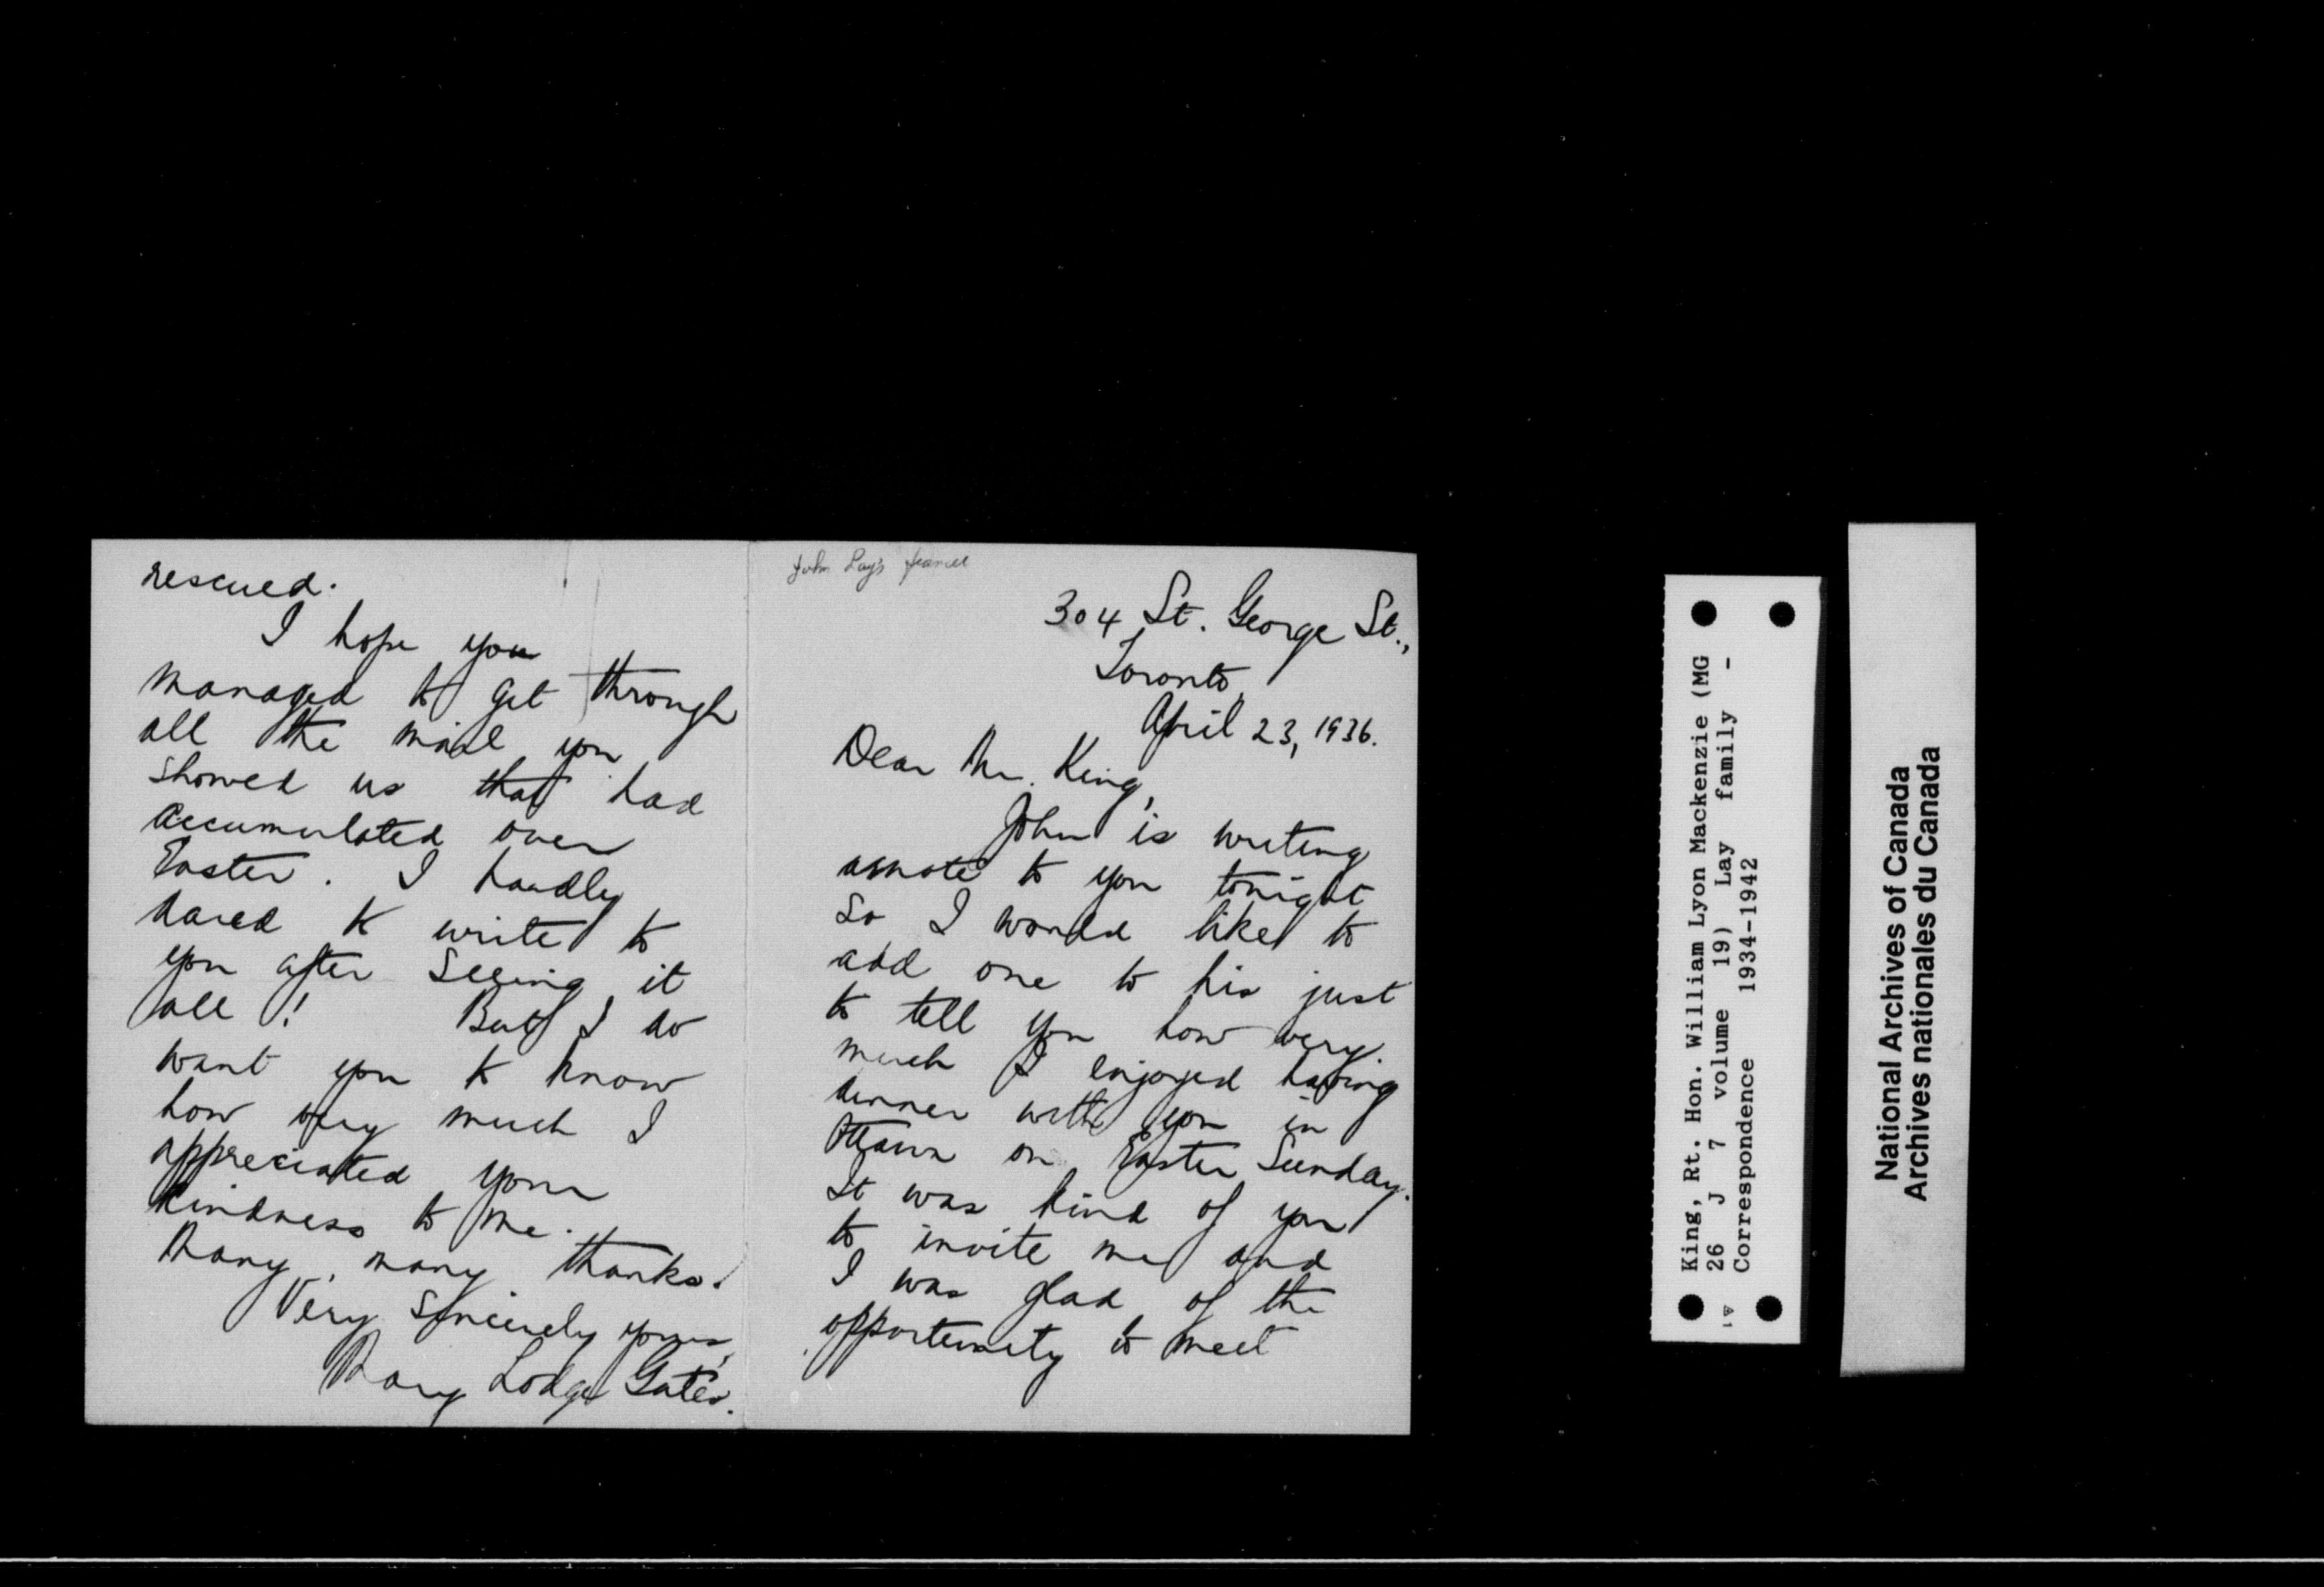 rescued.
I hope you
managed to get through
all the mail you
showed us that had
accumulated over
Easter. I hardly
dared to write to
you after seeing it
all! But I do
want you to know
how very much I
appreciated your
kindness to me.
Many, many thanks.
Very sincerely yours,
Mary Lodge Gates.
John Lay's fiancee
304 St. George St.,
Toronto,
April 23, 1936.
Dear Mr. King,
John is writing
a note to you tonight
so I would like to
add one to his just
to tell you how very
much I enjoyed having
dinner with you in
Ottawa on Easter Sunday.
It was kind of you
to invite me and
I was glad of the
opportunity to meet
King, Rt. Hon. William Lyon Mackenzie (MG
26 J 7 volume 19) Lay family -
Correspondence 1934-1942
National Archives of Canada
Archives nationales du Canada